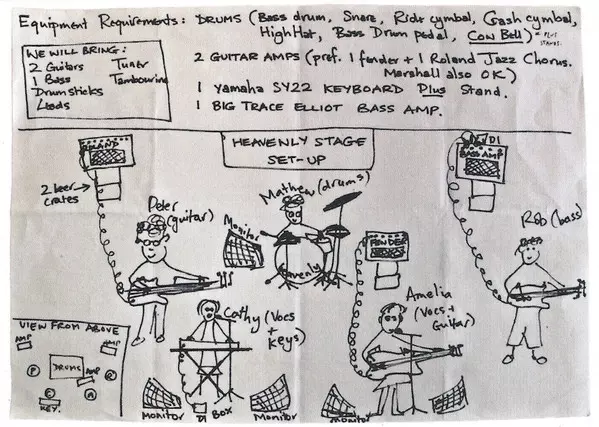 Equipment Requirements: DRUMS (Bass drum, Snare, Ride cymbal, Crash cymbal,
HighHat, Bass Drum pedal, COW Bell)* *PLUS
STANDS.
2 GUITAR AMPS (pref. 1 fender + 1 Roland Jazz Chorus.
Marshall also OK)
1 Yamaha SY22 KEYBOARD Plus Stand.
1 BIG TRACE ELLIOT BASS AMP.
WE WILL BRING:
2 Guitars Tuner
1 Bass Tambourine
Drumsticks
Leads
HEAVENLY STAGE
SET-UP
2 beer
crates
Peter
(guitar)
Monitor
Mathew (drums)
Heavenly
FENDER
DI
BASS AMP
Rob (bass)
Cathy (Vocs
+
keys)
Amelia
(Vocs +
Guitar)
Monitor
DI Box
Monitor
Monitor
VIEW FROM ABOVE
AMP
AMP
DRUMS
AMP
P
R
C
A
KEY.